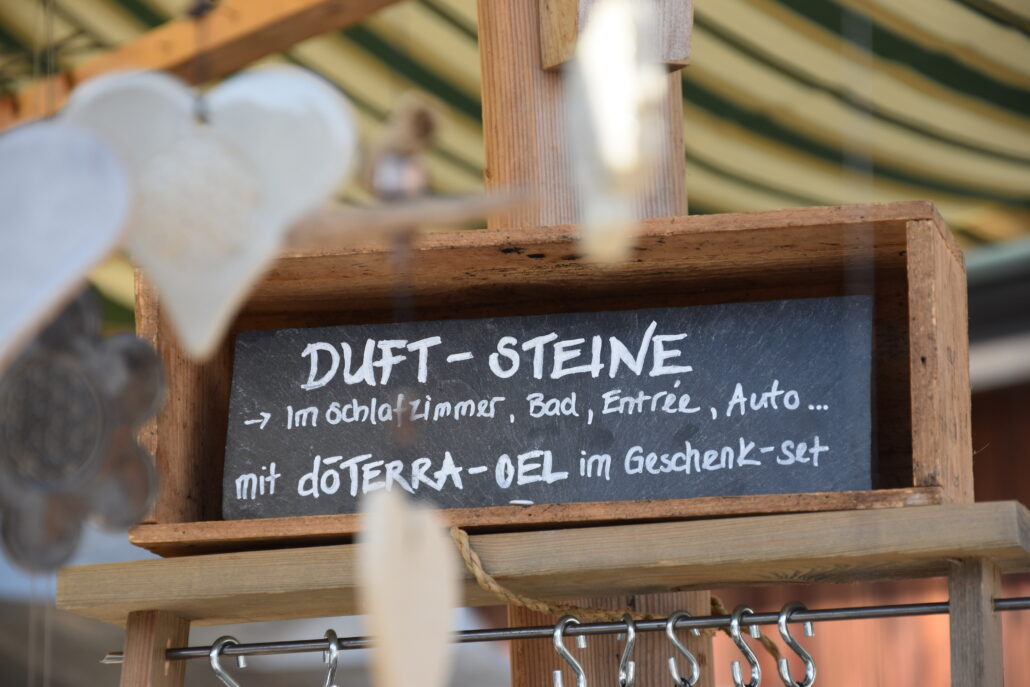 DUFT-STEINE
→ Im Schlafzimmer, Bad, Entrée, Auto...
mit dōTERRA-OEL im Geschenk-set